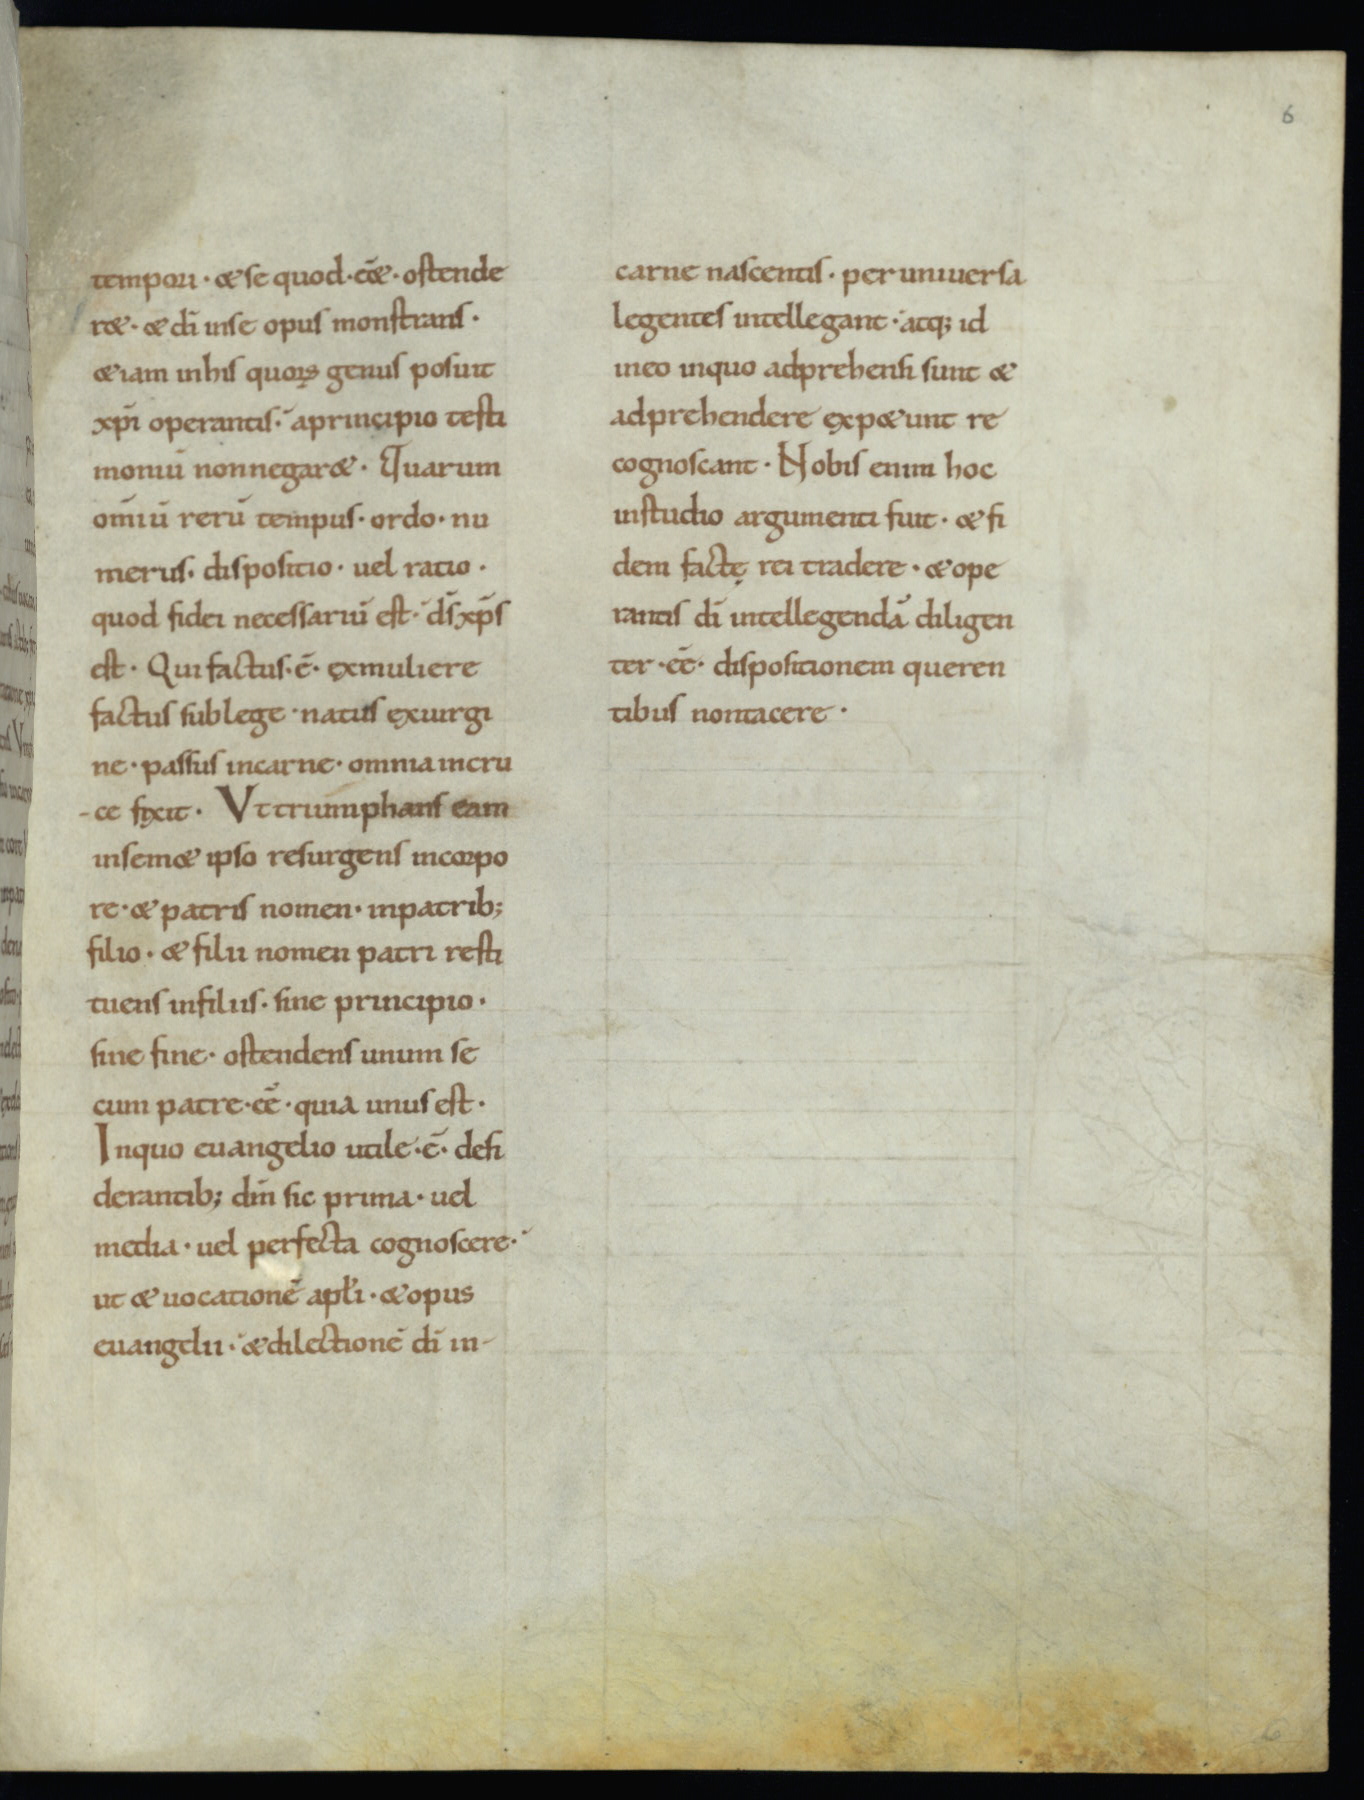 6
tempori · & se quod · eēt · ostende
r& · & dī inse opus monstrans ·
&iam inhis quoꝝ genus posuit
xpī operantis · aprincipio testi
moniū nonnegar& · Quarum
omiū rerū tempus · ordo · nu
merus · dispositio · uel ratio ·
quod fidei necessariū est · ds̄ xps̄
est · Qui factus · ē · exmuliere
factus sublege · natus exuirgi
ne · passus incarne · omnia incru
- ce fixit · Vt triumphans eam
insem& ipso resurgens incorpo
re · & patris nomen · inpatrib;
filio · & filii nomen patri resti
tuens infiliis · sine principio ·
sine fine · ostendens unum se
cum patre · eē · quia unus est ·
Inquo euangelio utile · ē · desi
derantib; dm̄ sic prima · uel
media · uel perfecta cognoscere ·
ut & uocationē apłi · & opus
euangelii · & dilectionē dī in-
carne nascentis · per uniuersa
legentes intellegant · atq; id
ineo inquo adprehensi sunt &
adprehendere exp&unt re
cognoscant · Nobis enim hoc
instudio argumenti fuit · & fi
dem factę rei tradere · & ope
rantis dī intellegendā diligen
ter · eē · dispositionem queren
tibus nontacere ·
6